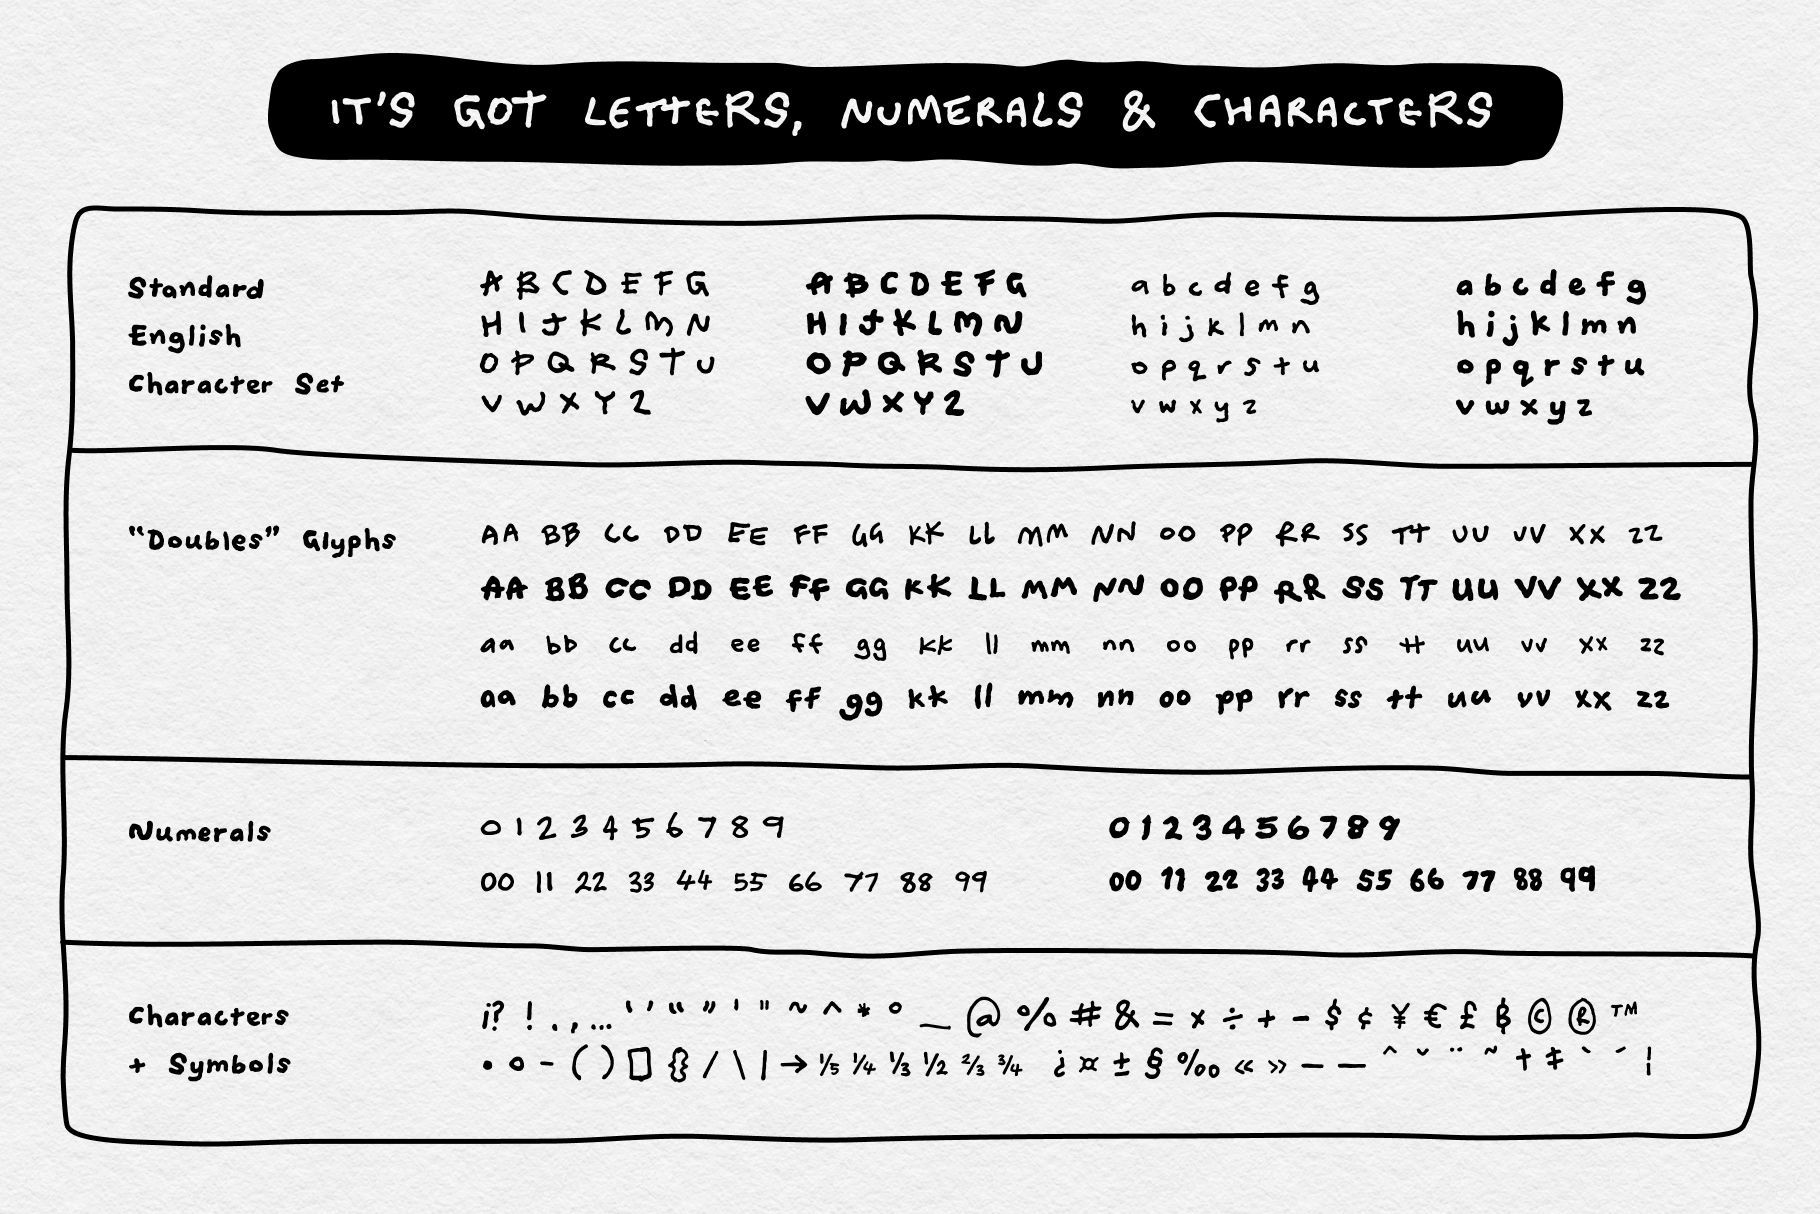 IT'S GOT LETTERS, NUMERALS & CHARACTERS
Standard
English
Character Set
A B C D E F G
H I J K L M N
O P Q R S T U
V W X Y Z
A B C D E F G
H I J K L M N
O P Q R S T U
V W X Y Z
a b c d e f g
h i j k l m n
o p q r s t u
v w x y z
a b c d e f g
h i j k l m n
o p q r s t u
v w x y z
“Doubles” Glyphs
AA BB CC DD EE FF GG KK LL MM NN OO PP RR SS TT UU VV XX ZZ
AA BB CC DD EE FF GG KK LL MM NN OO PP RR SS TT UU VV XX ZZ
aa bb cc dd ee ff gg kk ll mm nn oo pp rr ss tt uu vv xx zz
aa bb cc dd ee ff gg kk ll mm nn oo pp rr ss tt uu vv xx zz
Numerals
0 1 2 3 4 5 6 7 8 9
00 11 22 33 44 55 66 77 88 99
0 1 2 3 4 5 6 7 8 9
00 11 22 33 44 55 66 77 88 99
Characters
+ Symbols
¡? ! . , … ‘ ’ “ ” ' " ~ ^ * ° _ @ % # & = × ÷ + − $ ¢ ¥ € £ ₿ © ® ™
• ◦ - ( ) [] {} / \ | → ⅕ ¼ ⅓ ½ ⅔ ¾ ¿ ¤ ± § ‰ « » – — ˆ ˇ ¨ ˜ † ‡ ` ´ ¦